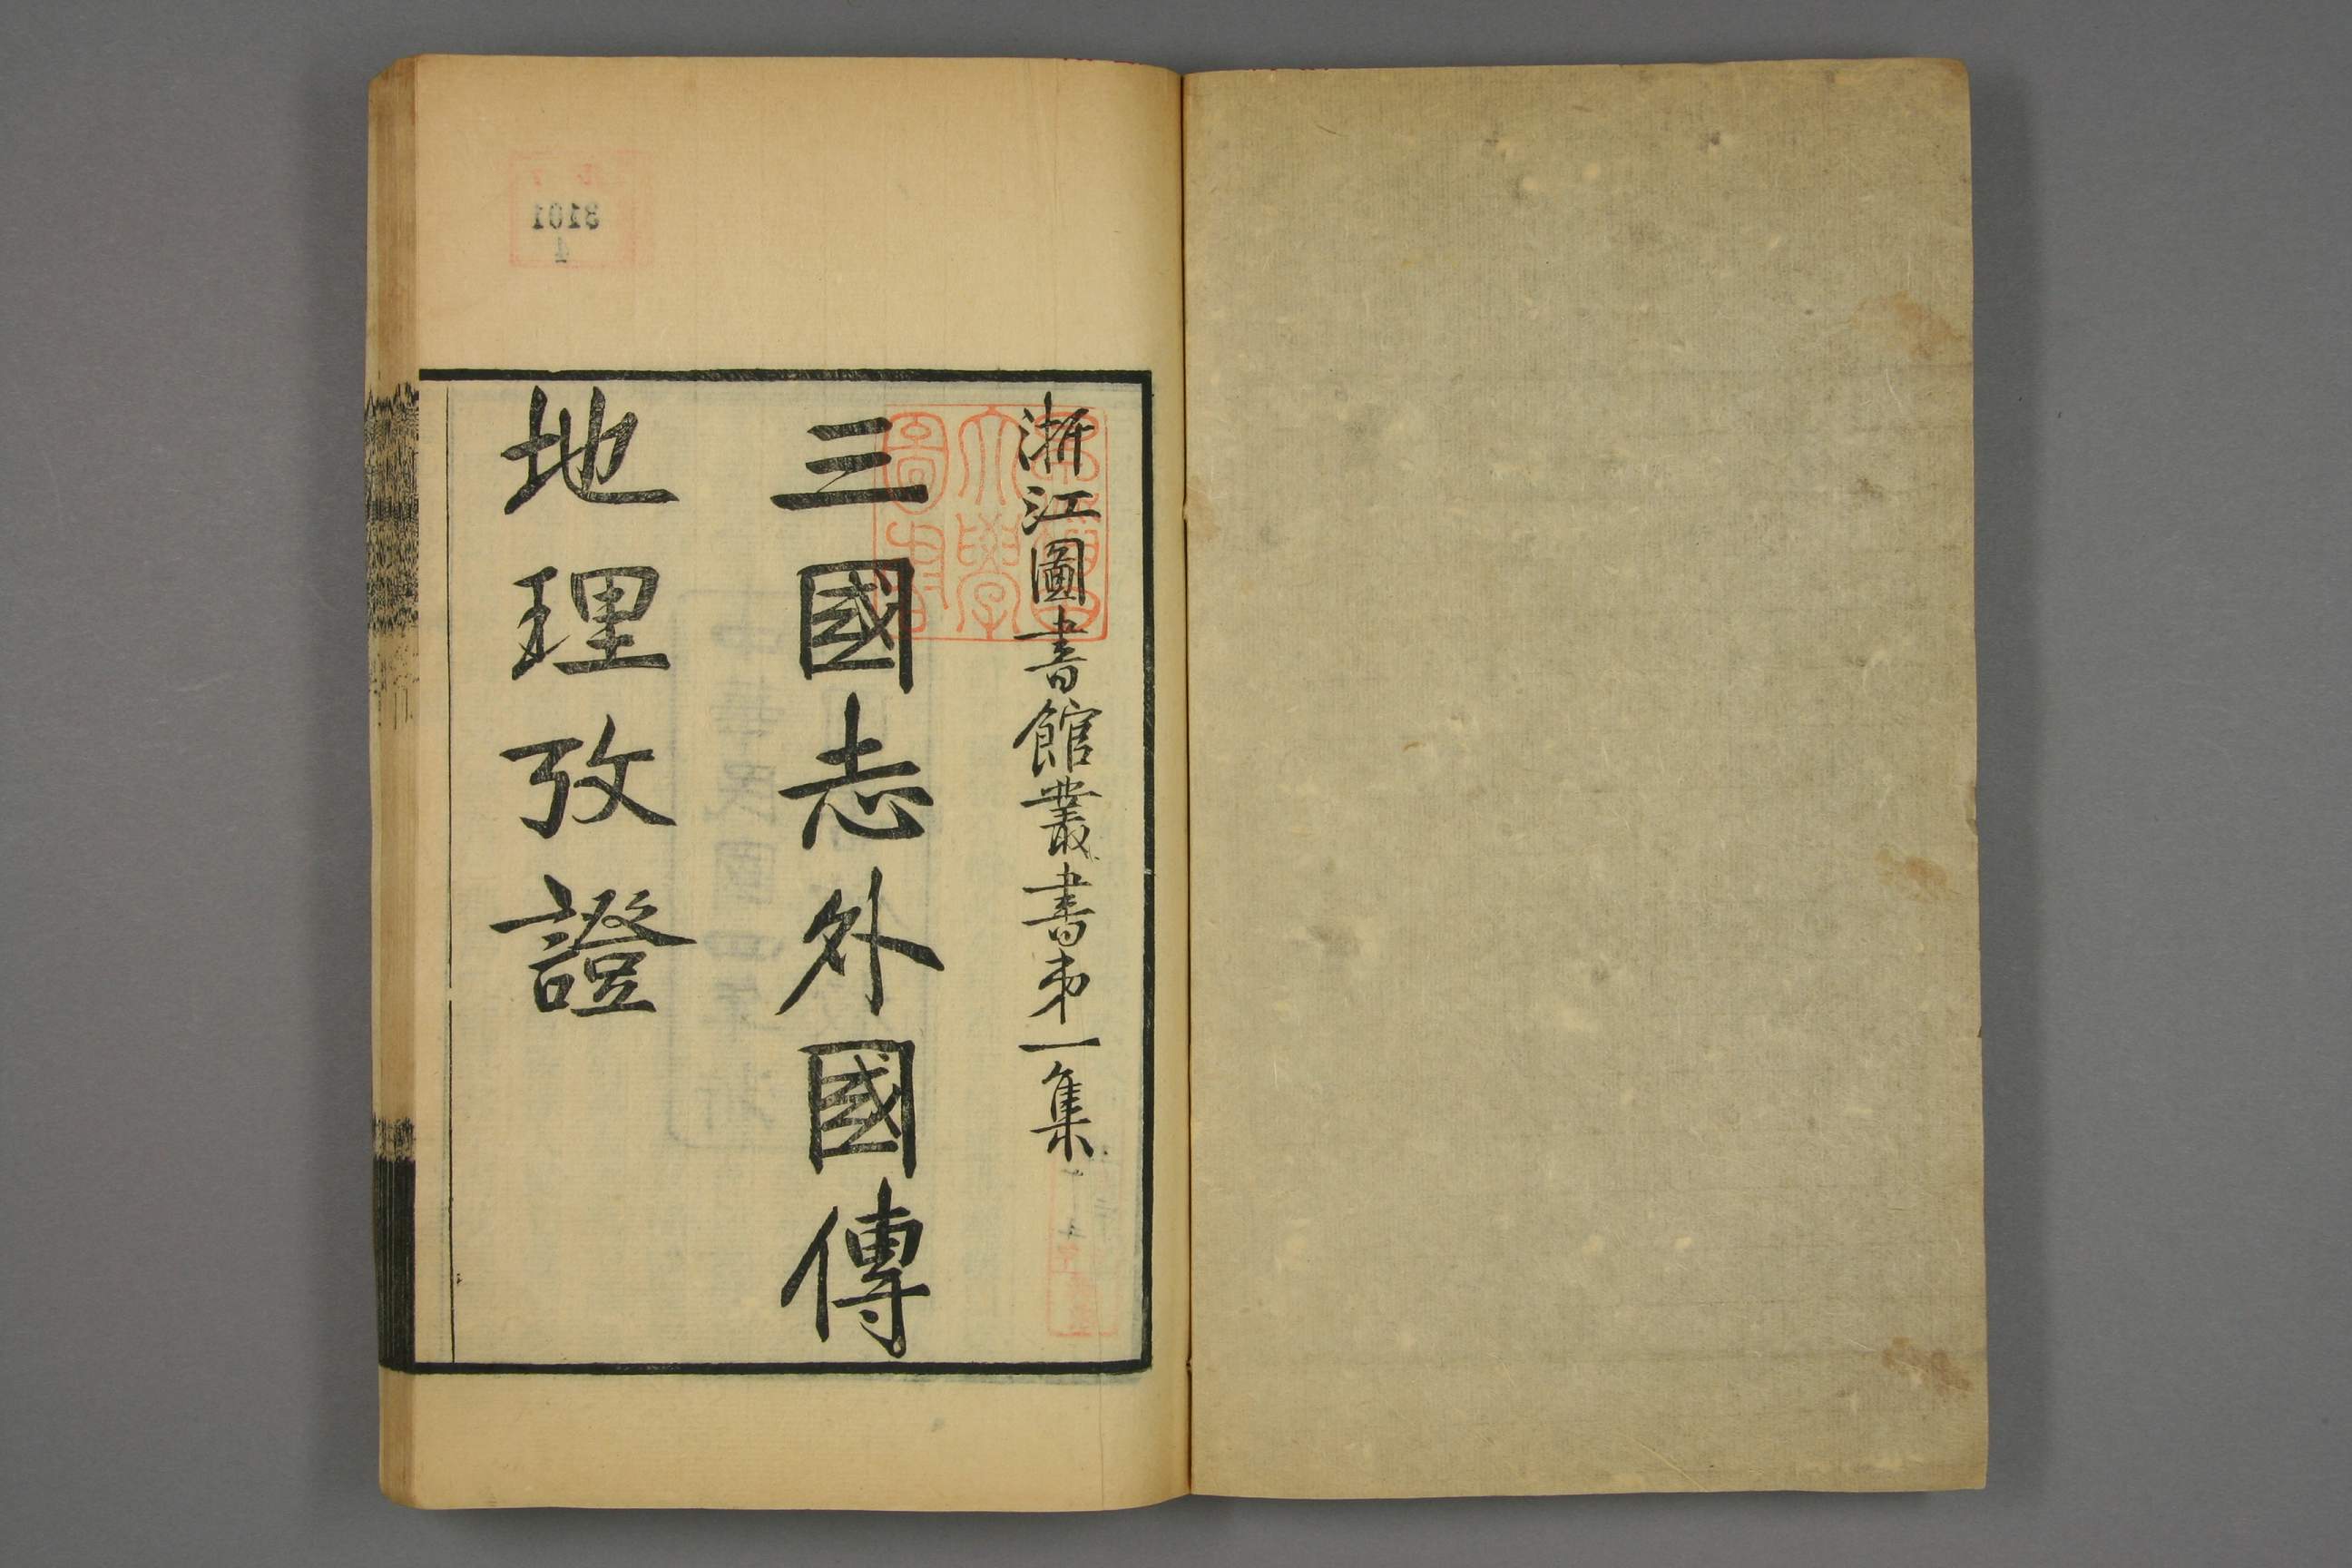 浙江圖書館叢書苐一集
三國志外國傳
地理攷證